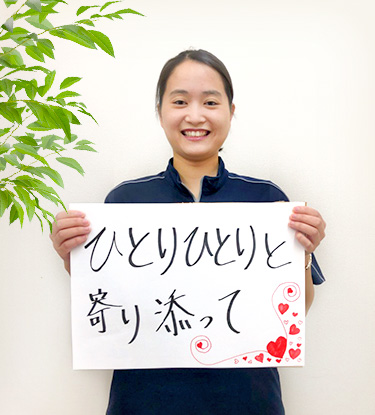 ひとりひとりと
寄り添って